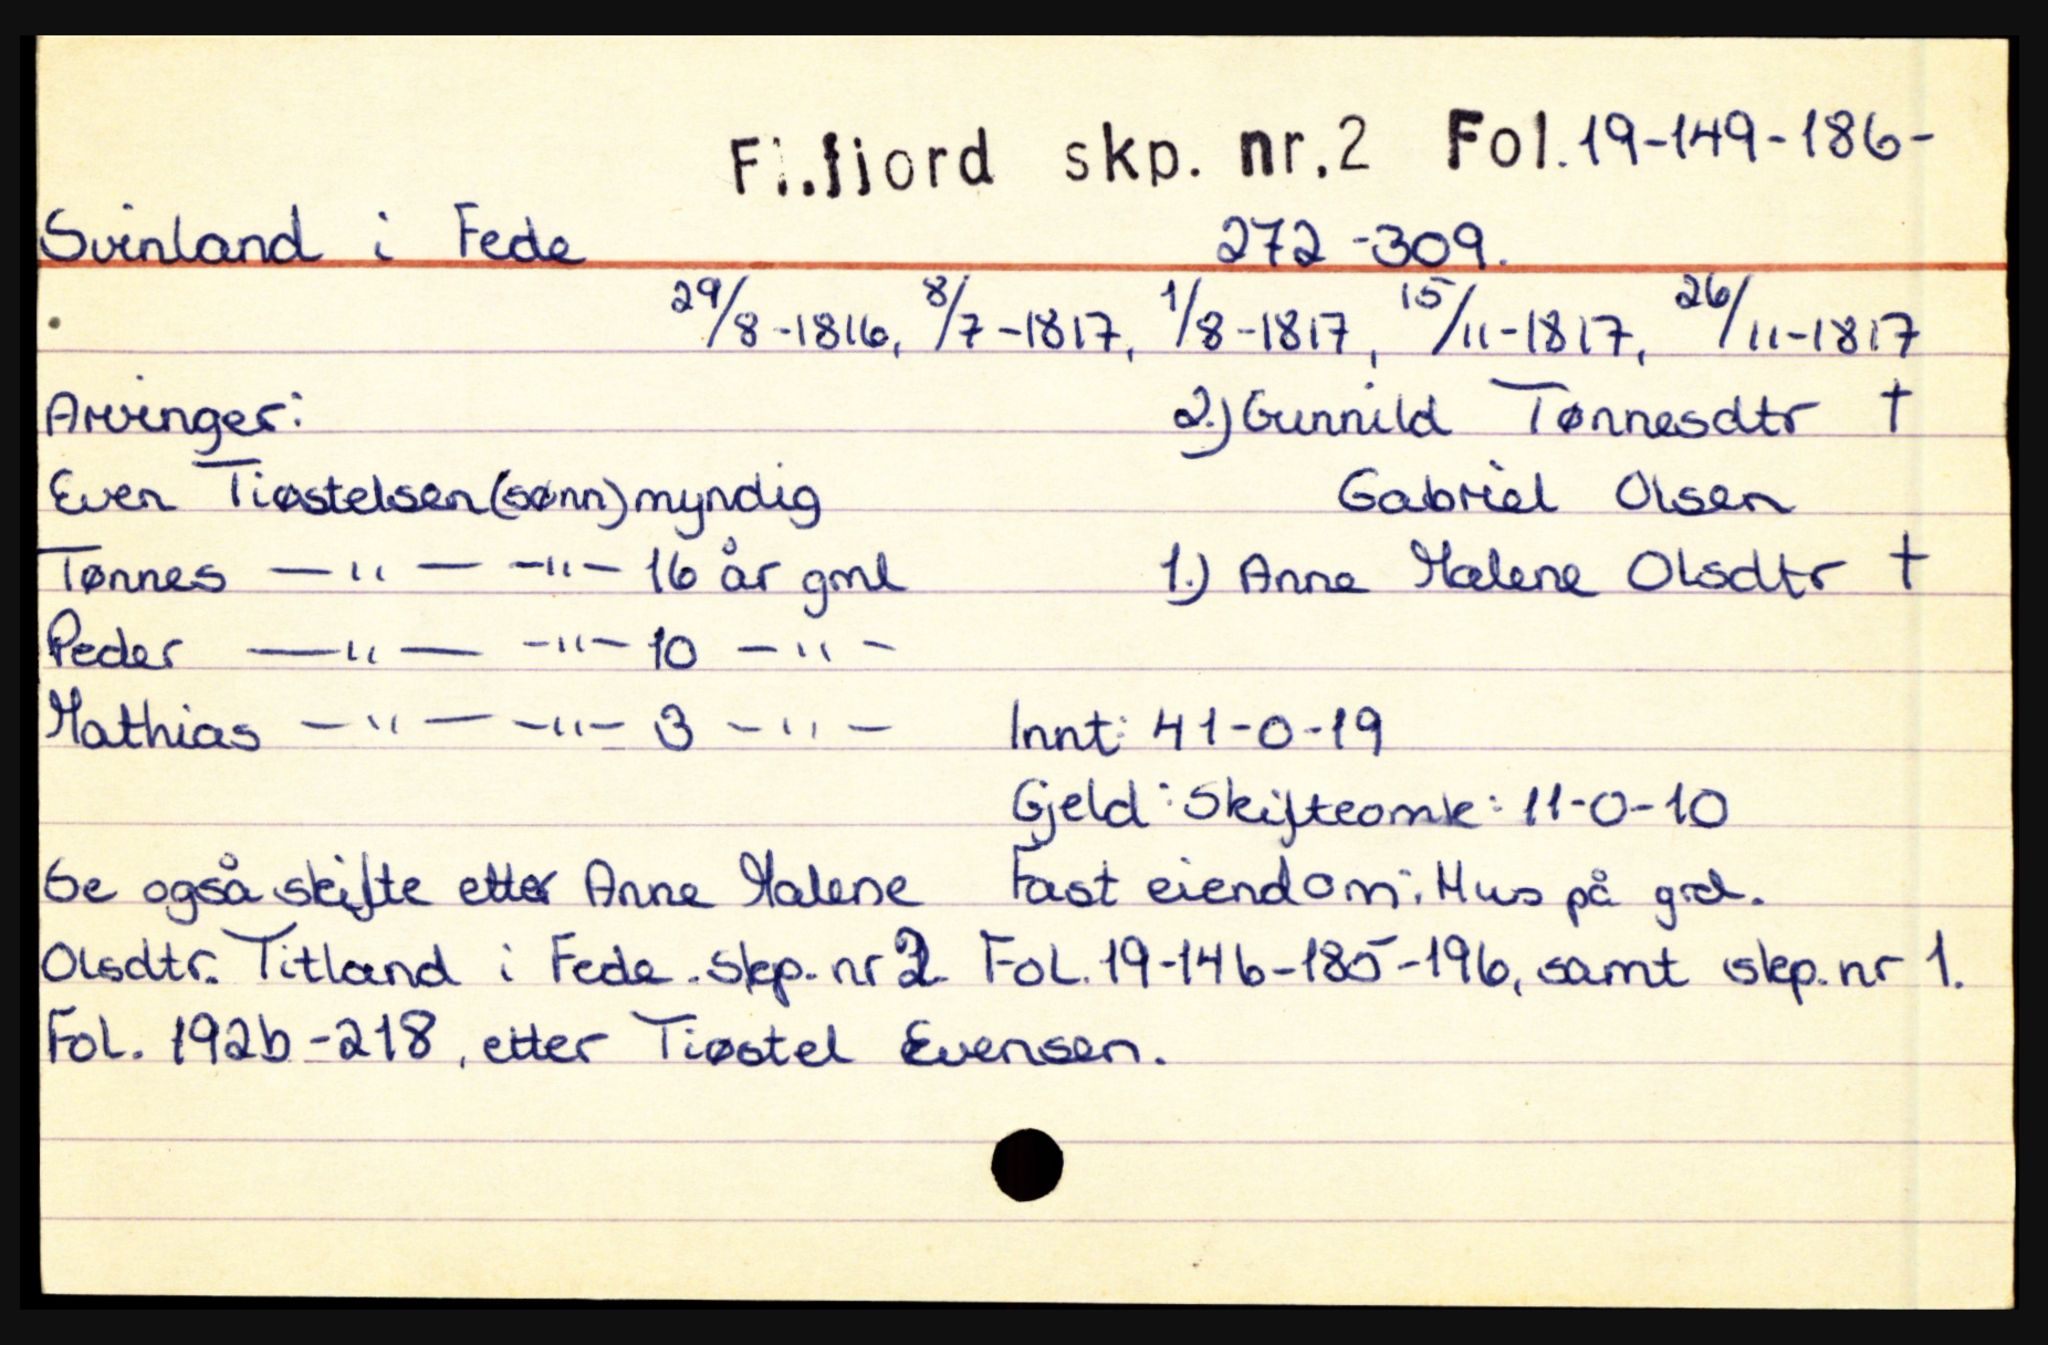 Fi.fjord skp. nr.2 Fol.19-149-186-
Svinland i Fede 272-309.
29/8-1816, 8/7-1817, 1/8-1817, 15/11-1817, 26/11-1817
Arvinger: 2.) Gunnild Tønnesdtr †
Even Tiøstelsen (sønn) myndig Gabriel Olsen
Tønnes — " — - " - 16 år gml 1.) Anne Malene Olsdtr †
Peder — " — - " - 10 - " -
Mathias — " — - " - 3 - " - Innt: 41-0-19
Gjeld: Skifteomk: 11-0-10
Se også skifte etter Anne Malene Fast eiendom: Hus på grd.
Olsdtr. Titland i Fede. Skp. nr 2 Fol. 19-146-185-196, samt skp. nr 1.
Fol. 192b-218, etter Tiøstel Evensen.